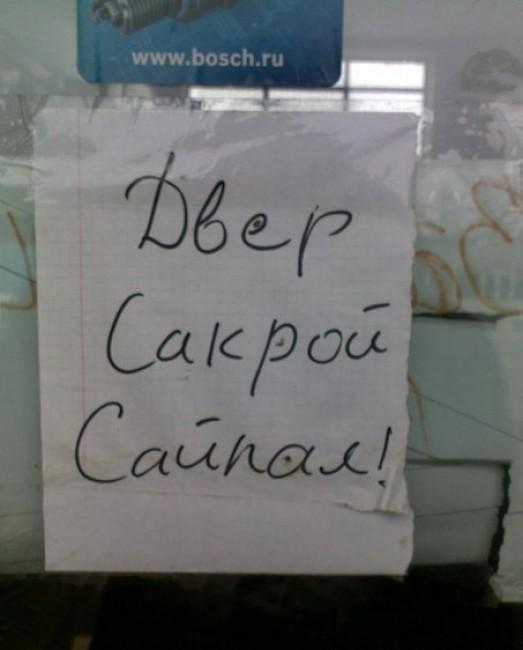 www.bosch.ru
Двер
Сакрой
Сайпал!